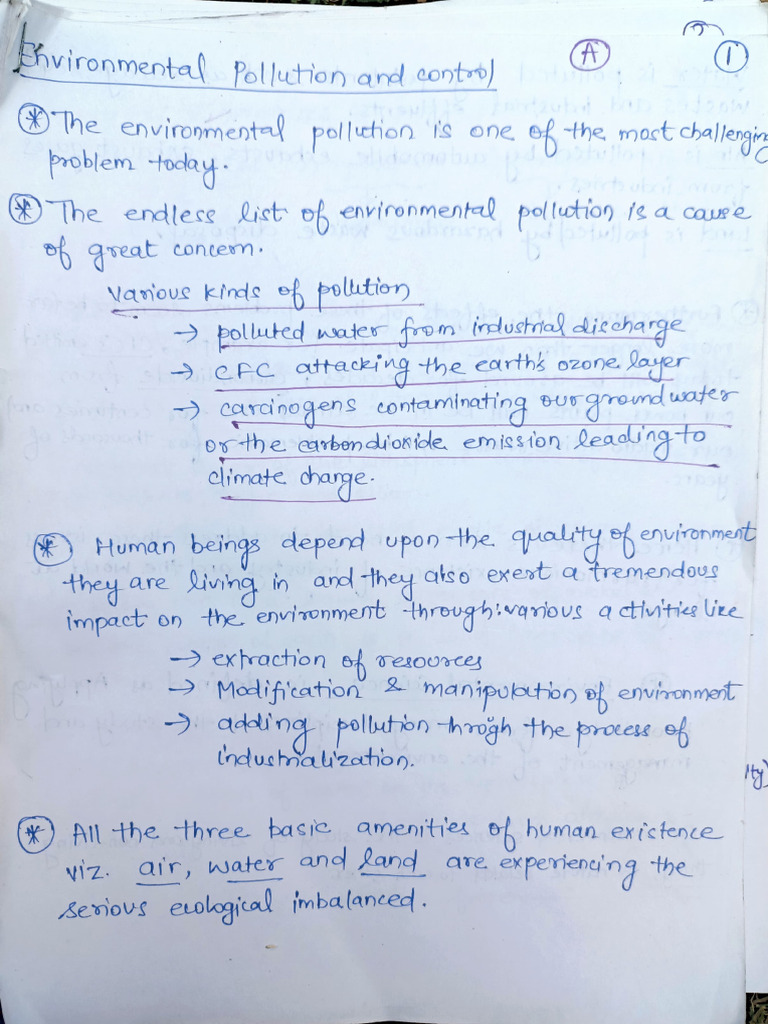 Environmental Pollution and control A 1
* The environmental pollution is one of the most challenging
problem today.
* The endless list of environmental pollution is a cause
of great concern.
various kinds of pollution
→ polluted water from industrial discharge
→ CFC attacking the earth's ozone layer
→ carcinogens contaminating our ground water
or the carbondioxide emission leading to
climate change.
* Human beings depend upon the quality of environment
they are living in and they also exert a tremendous
impact on the environment through: various activities like
→ extraction of resources
→ Modification & manipulation of environment
→ adding pollution throgh the process of
industrialization.
* All the three basic amenities of human existence
viz. air, water and land are experiencing the
serious ecological imbalanced.